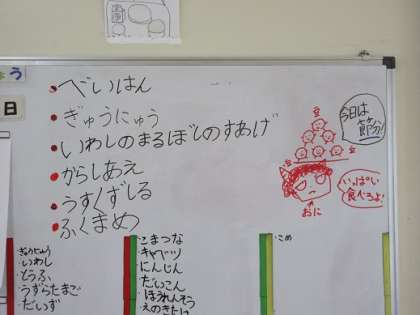 う
日
べいはん
ぎゅうにゅう
いわしのまるぼしのすあげ
からしあえ
うすくずじる
ふくまめ
今日は
節分!
いっぱい
食べろよ!
おに
ぎゅうにゅう
いわし
とうふ
うずらたまご
だいず
こまつな
キャベツ
にんじん
だいこん
ほうれんそう
えのきたけ
こめ